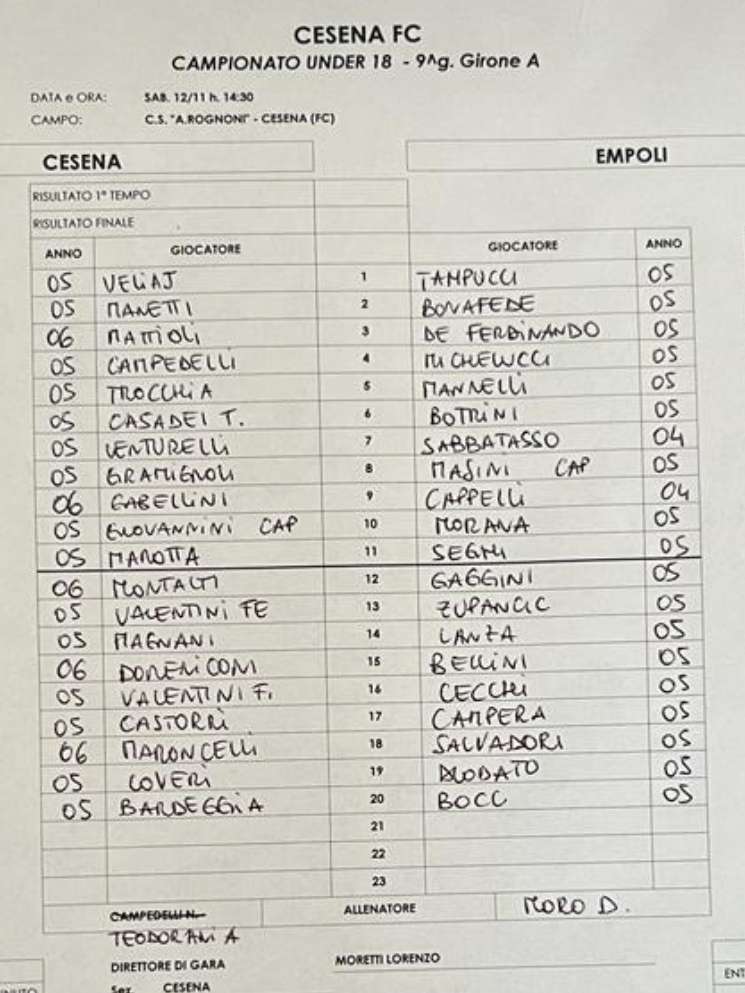 CESENA FC
CAMPIONATO UNDER 18 - 9^g. Girone A
DATA e ORA: SAB. 12/11 h. 14:30
CAMPO: C.S. "A.ROGNONI" - CESENA (FC)
CESENA EMPOLI
RISULTATO 1° TEMPO
RISULTATO FINALE
ANNO GIOCATORE GIOCATORE ANNO
05 VELIAJ 1 TAMPUCCI 05
05 MANETTI 2 BONAFEDE 05
06 MATTIOLI 3 DE FERDINANDO 05
05 CAMPEDELLI 4 MICHELUCCI 05
05 TROCCHIA 5 MANNELLI 05
05 CASADEI T. 6 BOTRINI 05
05 VENTURELLI 7 SABBATASSO 04
05 GRAMIGNOLI 8 MASINI CAP 05
06 GABELLINI 9 CAPPELLI 04
05 GIOVANNINI CAP 10 MORANA 05
05 MAROTTA 11 SEGHI 05
06 MONTALTI 12 GAGGINI 05
05 VALENTINI FE 13 ZUPANCIC 05
05 MAGNANI 14 LANZA 05
06 DOMENICONI 15 BELLINI 05
05 VALENTINI F. 16 CECCHI 05
05 CASTORRI 17 CAMPERA 05
06 MARONCELLI 18 SALVADORI 05
05 LOVERI 19 DIODATO 05
05 BARDEGGIA 20 BOCCI 05
21
22
23
CAMPEDELLI N. ALLENATORE MORO D.
TEODORANI A
DIRETTORE DI GARA MORETTI LORENZO
Sez. CESENA